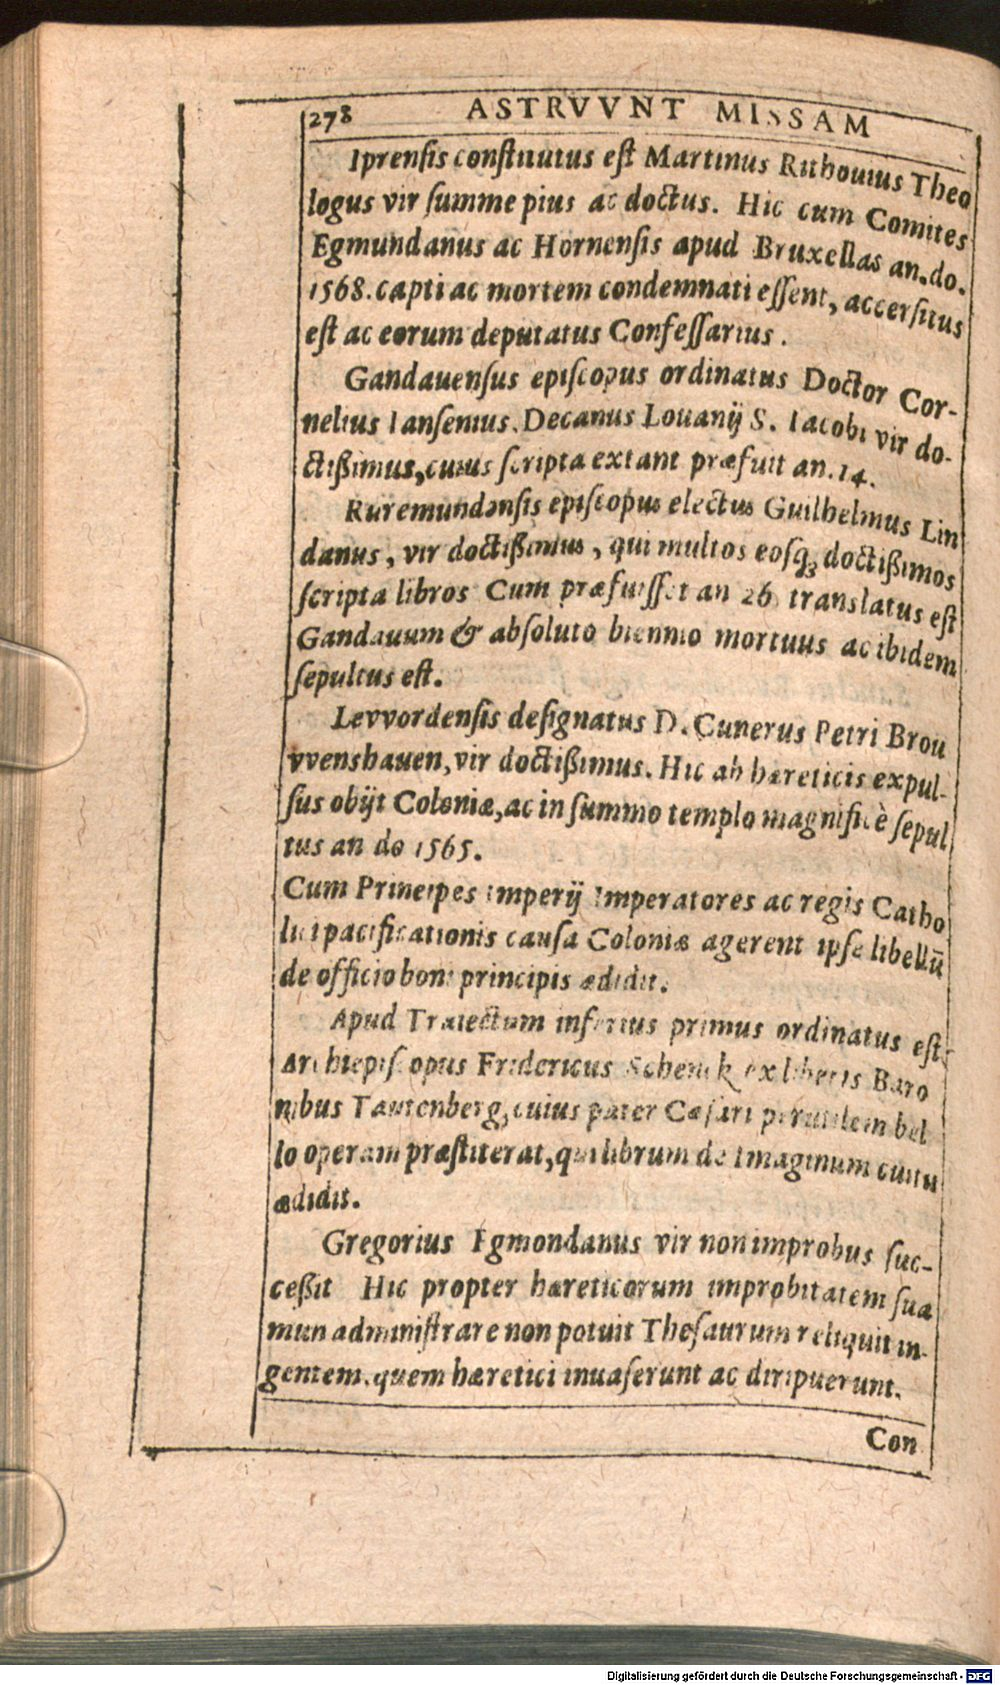 278 ASTRVVNT MISSAM
Iprensis constitutus est Martinus Rithouius Theo
logus vir summe pius ac doctus. Hic cum Comites
Egmundanus ac Hornensis apud Bruxellas an.do.
1568. capti ac mortem condemnati essent, accersitus
est ac eorum deputatus Confessarius.
Gandauensus episcopus ordinatus Doctor Cor-
nelius Iansenius. Decanus Louanij S. Iacobi vir do-
ctißimus, cuius scripta extant præfuit an. 14.
Ruremundensis episcopus electus Guilhelmus Lin
danus, vir doctißimus, qui multos eosq; doctißimos
scripta libros Cum præfuisset an 26 translatus est
Gandauum & absoluto biennio mortuus ac ibidem
sepultus est.
Levvordensis designatus D. Cunerus Petri Brou
vvenshauen, vir doctißimus. Hic ab hæreticis expul-
sus obijt Coloniæ, ac in summo templo magnificè sepul
tus an do 1565.
Cum Principes imperij Imperatores ac regis Catho
lici pacificationis causa Coloniæ agerent ipse libellū
de officio boni principis ædidit.
Apud Traiectum inferius primus ordinatus est
Archiepiscopus Fridericus Schenck ex liberis Baro
nibus Tautenberg, cuius pater Cæsari perutilem bel
lo operam præstiterat, qui librum de Imaginum cultu
ædidit.
Gregorius Egmondanus vir non improbus suc-
ceßit Hic propter hæreticorum improbitatem sua
mun administrare non potuit Thesaurum reliquit in-
gentem. quem hæretici inuaserunt ac diripuerunt.
Con
Digitalisierung gefördert durch die Deutsche Forschungsgemeinschaft - DFG